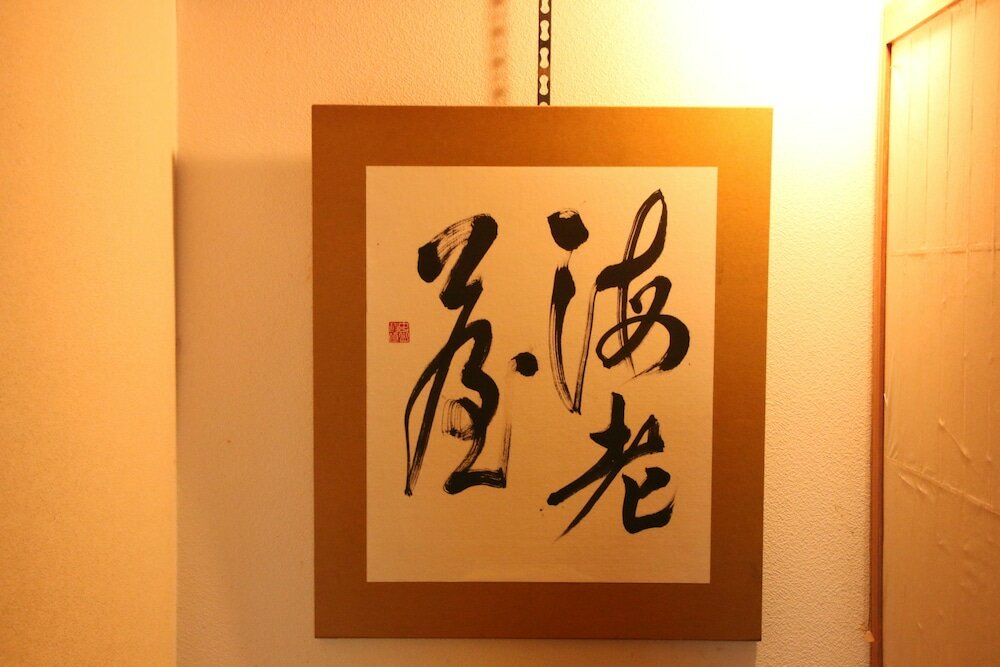 海老
屋